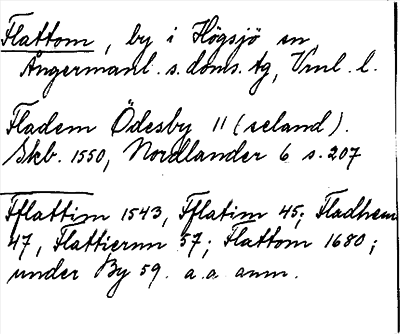 Flattom, by i Högsjö sn
Ångermanl. s. doms. tg, Vrnl. l.
Fladem Ödesby 11 (seland).
Skb. 1550, Nordlander 6 s. 207
Fflattim 1543, Fflatim 45; Fladhem
47, Flattiernn 57; Flattom 1680;
under By 59. a. a anm.